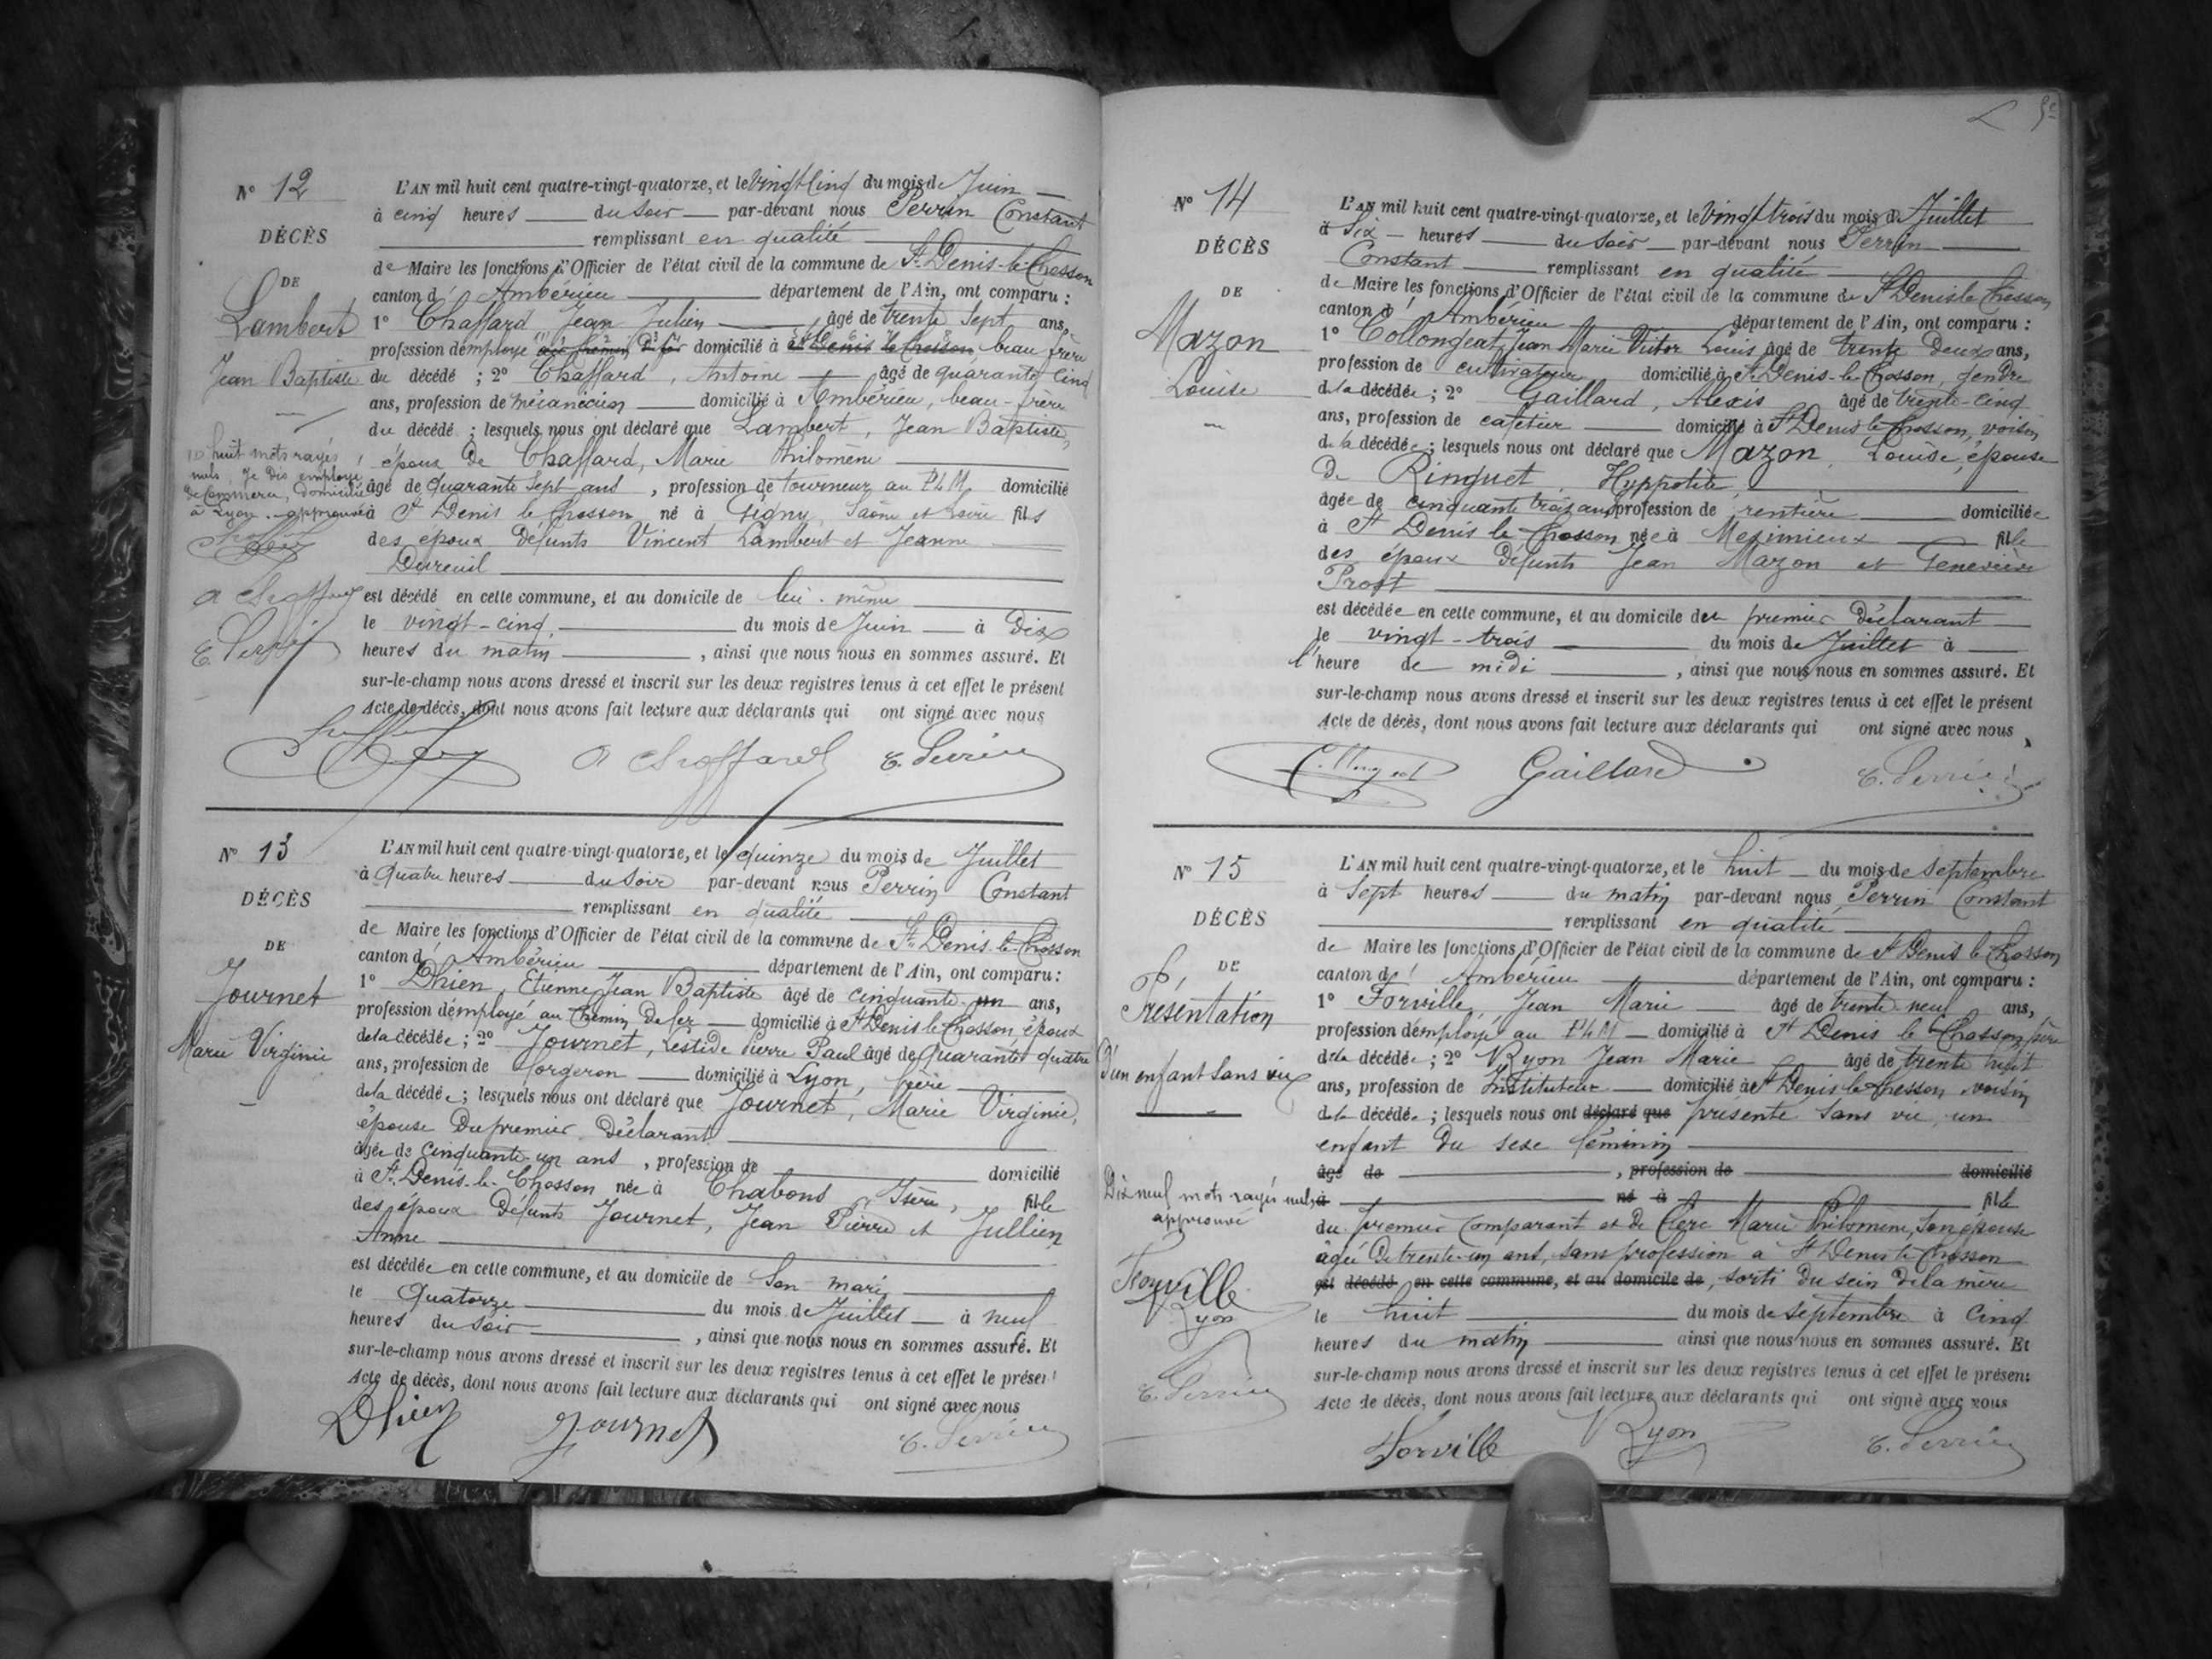 N° 12
DÉCÈS
DE
Lambert
Jean Baptiste
huit mots rayés
nuls, Je dis employé
de Commerce, domicilié
à Lyon. approuvé
A Chaffard
C. Perrin
L'AN mil huit cent quatre-vingt-quatorze, et le vingt cinq du mois de Juin
à cinq heures du soir par-devant nous Perrin Constant
remplissant en qualité
de Maire les fonctions d'Officier de l'état civil de la commune de St Denis-le-Chosson
canton d'Ambérieu département de l'Ain, ont comparu :
1° Chaffard Jean Julien âgé de trente sept ans,
profession d'employé au chemin de fer domicilié à St Denis le Chosson beau frère
du décédé ; 2° Chaffard, Antoine âgé de quarante cinq
ans, profession de mécanicien domicilié à Ambérieu, beau-frère
du décédé ; lesquels nous ont déclaré que Lambert, Jean Baptiste,
époux de Chaffard, Marie Philomène
âgé de quarante sept ans, profession de tourneur au PLM domicilié
à St Denis le Chosson né à Gigny, Saône et Loire fils
des époux défunts Vincent Lambert et Jeanne
Dureuil
est décédé en cette commune, et au domicile de lui-même
le vingt-cinq du mois de Juin à Dix
heures du matin, ainsi que nous nous en sommes assuré. Et
sur-le-champ nous avons dressé et inscrit sur les deux registres tenus à cet effet le présent
Acte de décès, dont nous avons fait lecture aux déclarants qui ont signé avec nous
A Chaffard C. Perrin
N° 13
DÉCÈS
DE
Journet
Marie Virginie
L'AN mil huit cent quatre-vingt-quatorze, et le quinze du mois de Juillet
à quatre heures du soir par-devant nous Perrin Constant
remplissant en qualité
de Maire les fonctions d'Officier de l'état civil de la commune de St Denis-le-Chosson
canton d'Ambérieu département de l'Ain, ont comparu :
1° Dhien, Etienne Jean Baptiste âgé de cinquante-un ans,
profession d'employé au Chemin de fer domicilié à St Denis le Chosson, époux
de la décédée ; 2° Journet, Pierre Paul âgé de quarante quatre
ans, profession de forgeron domicilié à Lyon, frère
de la décédée ; lesquels nous ont déclaré que Journet, Marie Virginie,
épouse du premier déclarant
âgée de cinquante-un ans, profession de domicilié
à St Denis-le-Chosson née à Chabons, Isère, fille
des époux défunts Journet, Jean Pierre et Jullien
Anne
est décédée en cette commune, et au domicile de son mari
le quatorze du mois de Juillet à neuf
heures du soir, ainsi que nous nous en sommes assuré. Et
sur-le-champ nous avons dressé et inscrit sur les deux registres tenus à cet effet le présent
Acte de décès, dont nous avons fait lecture aux déclarants qui ont signé avec nous
Dhien Journet C. Perrin
N° 14
DÉCÈS
DE
Mazon
Louise
L'AN mil huit cent quatre-vingt-quatorze, et le vingt trois du mois de Juillet
à six heures du soir par-devant nous Perrin
Constant remplissant en qualité
de Maire les fonctions d'Officier de l'état civil de la commune de St Denis le Chosson
canton d'Ambérieu département de l'Ain, ont comparu :
1° Collongeat, Jean Marie Victor Louis âgé de trente deux ans,
profession de cultivateur domicilié à St Denis-le-Chosson, gendre
de la décédée ; 2° Gaillard, Alexis âgé de trente-cinq
ans, profession de cafetier domicilié à St Denis le Chosson, voisin
de la décédée ; lesquels nous ont déclaré que Mazon, Louise, épouse
de Ringuet, Hyppolite,
âgée de cinquante trois ans, profession de rentière domiciliée
à St Denis le Chosson née à Meximieux fille
des époux défunts Jean Mazon et Geneviève
Prost
est décédée en cette commune, et au domicile du premier déclarant
le vingt-trois du mois de Juillet à
l'heure de midi, ainsi que nous nous en sommes assuré. Et
sur-le-champ nous avons dressé et inscrit sur les deux registres tenus à cet effet le présent
Acte de décès, dont nous avons fait lecture aux déclarants qui ont signé avec nous
Collongeat Gaillard C. Perrin
N° 15
DÉCÈS
DE
Présentation
d'un enfant sans vie
Dix neuf mots rayés nuls
approuvé
Forville
Lyon
C. Perrin
L'AN mil huit cent quatre-vingt-quatorze, et le huit du mois de septembre
à sept heures du matin par-devant nous Perrin Constant
remplissant en qualité
de Maire les fonctions d'Officier de l'état civil de la commune de St Denis le Chosson
canton d'Ambérieu département de l'Ain, ont comparu :
1° Forville, Jean Marie âgé de trente neuf ans,
profession d'employé au PLM domicilié à St Denis le Chosson, père
de la décédée ; 2° Lyon Jean Marie âgé de trente huit
ans, profession de Instituteur domicilié à St Denis le Chosson, voisin
de la décédée ; lesquels nous ont déclaré que présenté sans vie, un
enfant du sexe féminin
âgé de , profession de domicilié
à né à fille
du premier comparant et de Clerc Marie Philomène, son épouse
âgée de trente-un ans, sans profession à St Denis le Chosson
est décédé en cette commune, et au domicile de, sorti du sein de la mère
le huit du mois de septembre à cinq
heures du matin ainsi que nous nous en sommes assuré. Et
sur-le-champ nous avons dressé et inscrit sur les deux registres tenus à cet effet le présent
Acte de décès, dont nous avons fait lecture aux déclarants qui ont signé avec nous
Forville Lyon C. Perrin